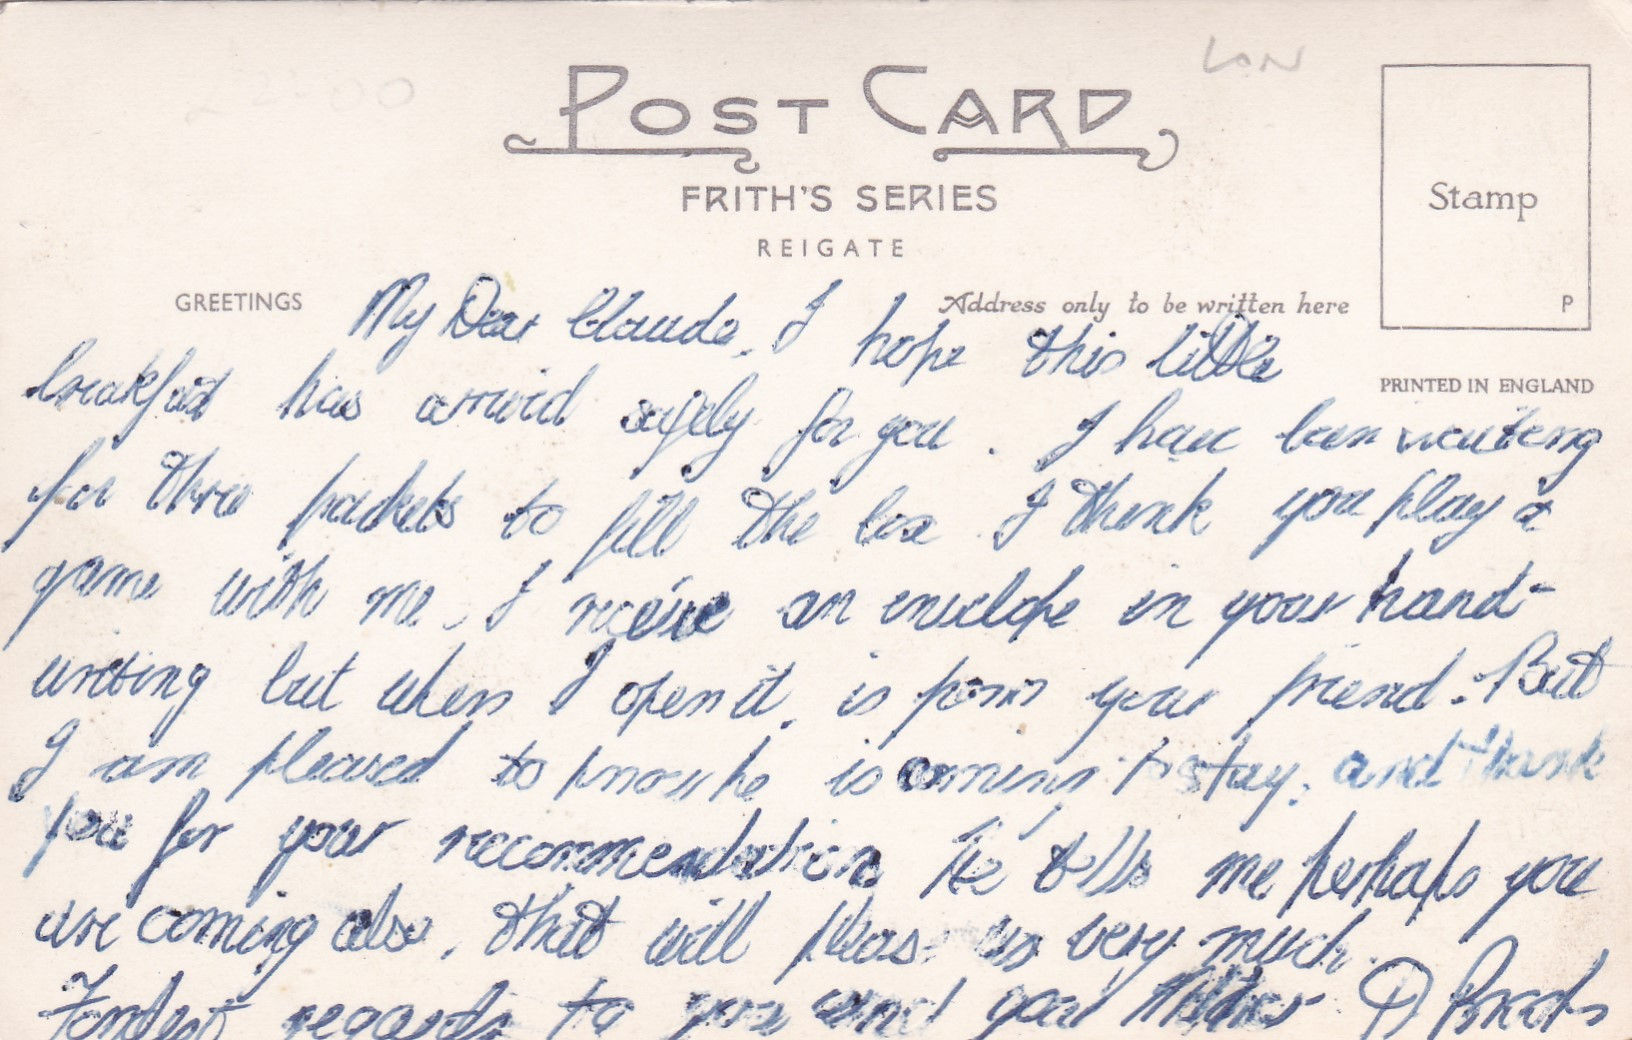 LON
POST CARD
FRITH'S SERIES
REIGATE
Stamp
P
GREETINGS
Address only to be written here
PRINTED IN ENGLAND
My Dear Claude, I hope this little
breakfast has arrived safely for you. I have been waiting
for three packets to fill the box. I think you play a
game with me. I receive an envelope in your hand-
writing but when I open it, is from your friend. But
I am pleased to know he is coming to stay, and thank
you for your recommendation. He tells me perhaps you
are coming also, that will please us very much.
Fondest regards to you and your Mother